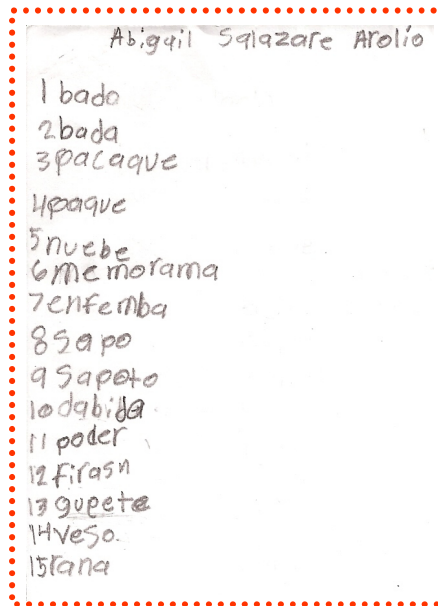 Abigail Salazare Arolio
1 bado
2 bada
3 pacaque
4 paque
5 nuebe
6 memorama
7 enfemba
8 sapo
9 sapoto
10 dabida
11 poder
12 firasn
13 gupete
14 veso.
15 rana